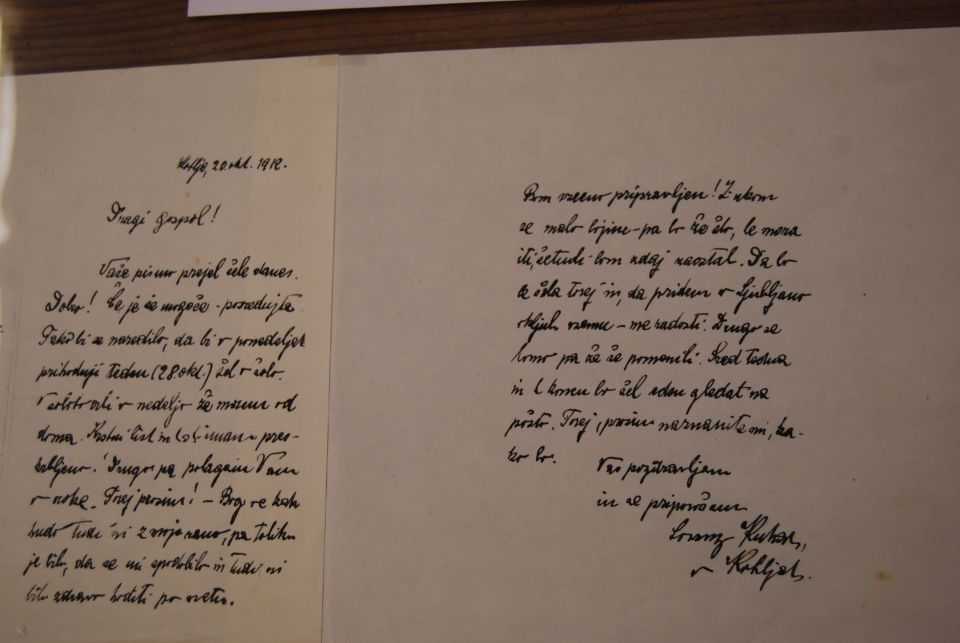 Kotlje, 20. okt. 1912.
Dragi gospod!
Vaše pismo prejel šele danes.
Dobro! Če je še mogoče - posredujte.
Tako bi se naredilo, da bi v ponedeljek
prihodnji teden (28 okt.) šel v šolo.
V soboto ali v nedeljo že moram od
doma. Krstni list in imam pres-
krbljeno. Drugo pa polagam Vam
v roke. Torej prosim! - Bog ve kako
hudo tudi ni z mojo rano, pa toliko
je bilo, da se mi spodobilo in tudi ni
bilo zdravo hoditi po svetu.
Bom vseeno pripravljen! Z ukom
se malo bojim - pa bo že šlo, le mora
iti, četudi bom zdaj zaostal. Da bo
le šla torej in, da pridem v Ljubljano
kljub vsemu - me radosti. Drugo se
bomo pa že še pomenili. Sred tedna
in h koncu bo šel eden gledat na
pošto. Torej, prosim naznanite mi, ka-
ko bo.
Vas pozdravljam
in se priporočam
Lorenz Kuhar,
v Kotljah.